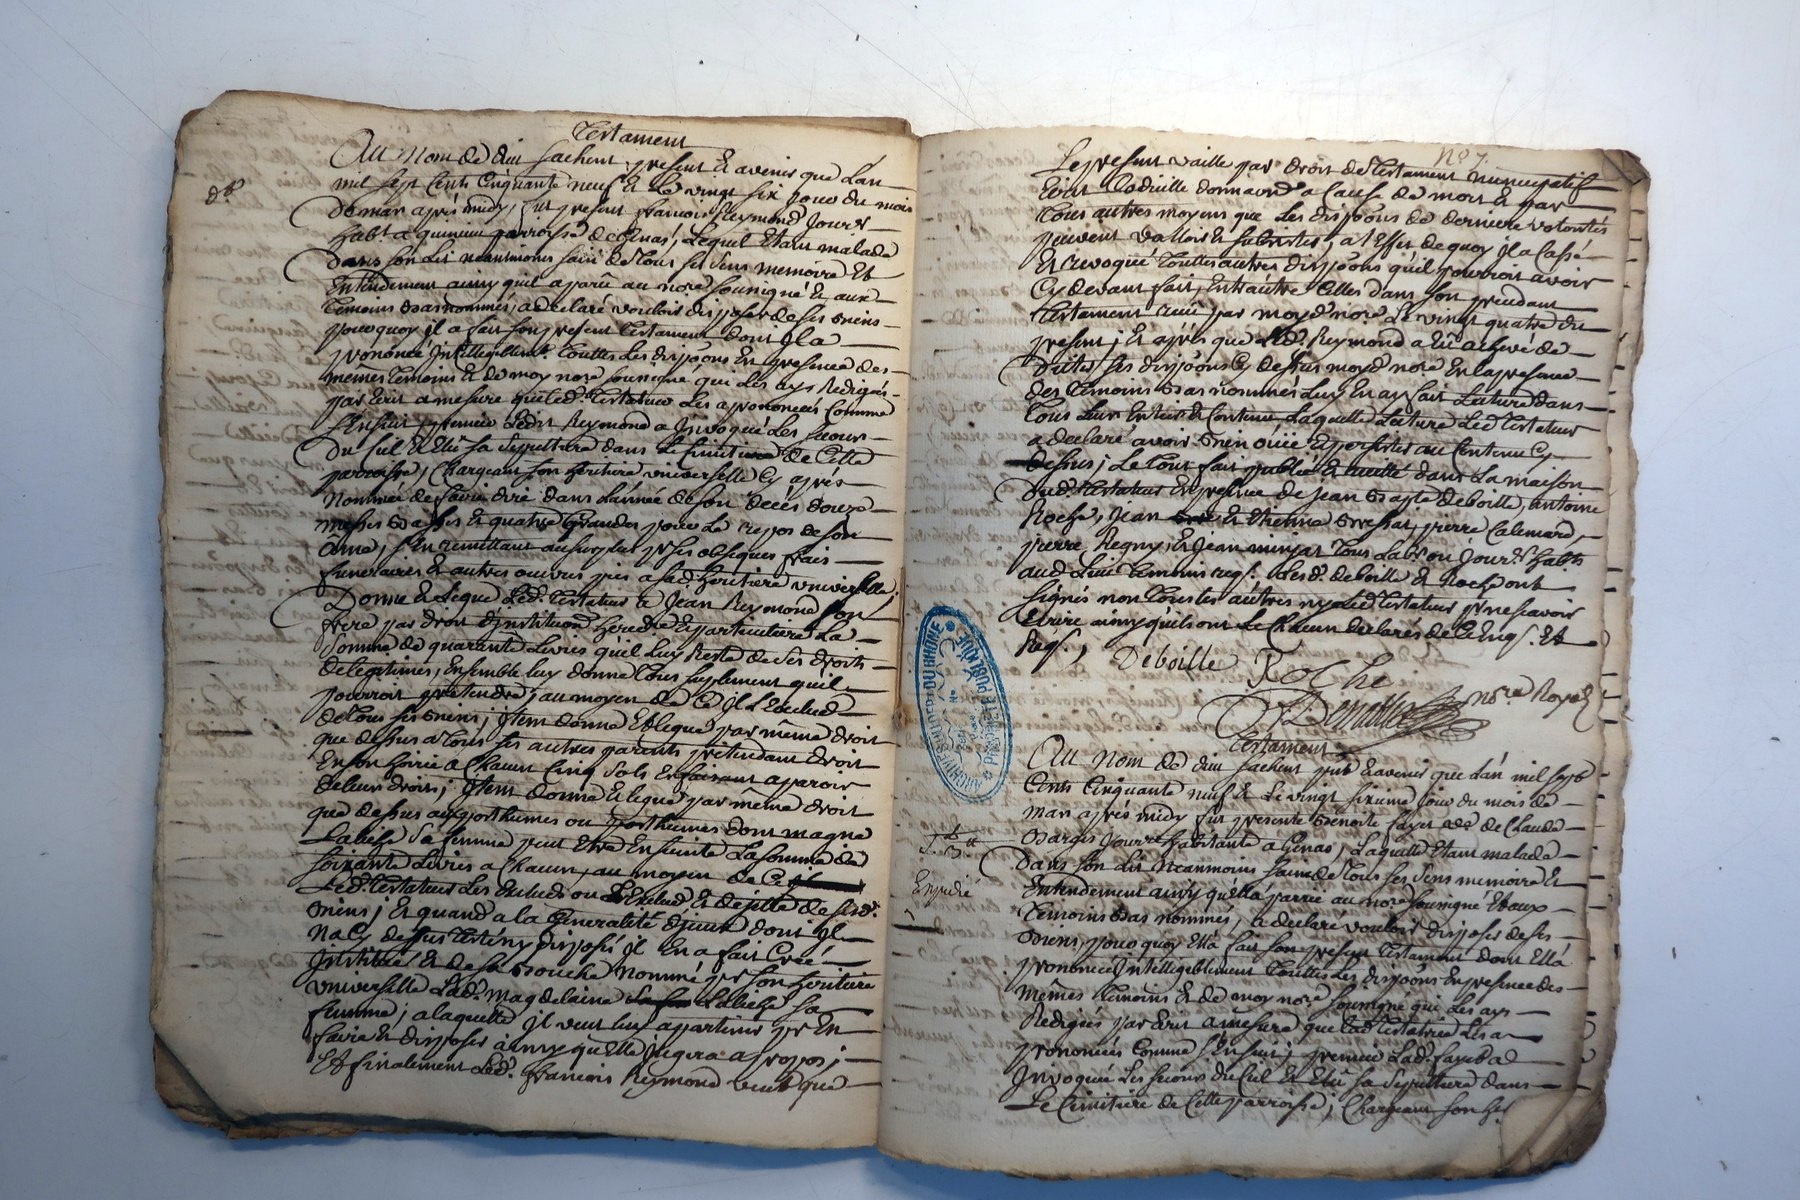 Testament
Au Nom de dieu sachent presens & avenir que L'an
mil sept cents cinquante neuf & Le vingt six jour du mois
de mars après midy, fut present françois Reymond Jour.r
hab.t a parroisse de Genas, Lequel Etant malade
dans son Lit neanmoins sain de tous ses sens memoire Et
Entendement ainsy quil a parû au no.re soussigné & aux
Temoins bas nommés, a declaré vouloir disposer de ses biens
pour quoy il a fait son present Testament dont Il a
prononcé Intelligiblem.t Touttes Les dispôons En presence des
mêmes Temoins & de moy no.re soussigné qui Les ays Redigés
par Ecrit a mesure que Led. Testateur Les a prononcées Comme
s'Ensuit, premier Ledit Reymond a Invoqué Les secours
du Ciel & Elû sa sepulture dans Le cimitiere de Cette
parroisse, Chargeant son heritiere universelle Cy après
Nommée de faire dire dans L'année de son decès douze
messes basses & quatre Grandes pour Le repos de son
âme, s'En remettant au surplus p.r ses obseques frais
funeraires & autres œuvres pies a sad. heritiere universelle
Donne & Legue Led. Testateur a Jean Reymond son
frere par droit d'institution hered.re & particuliere La
somme de quarante Livres quil Luy Reste de ses droits
de legitimes, Ensemble luy donne tous suplement quil
pourroit pretendre, au moyen de Ce Il L'Exclud
de tous ses biens; Item donne & legue par même droit
que dessus a tous ses autres parents pretendant droit
En son hoirie a Chacun Cinq sols En faisant aparoir
de leur droits; Item donne & legue par même droit
que dessus aux posthumes ou posthumes dont magne
Labesse sa femme peut Etre Enceinte La somme de
soixante Livres a Chacun, au moyen de Ce
Led. Testateur Les Exclud ou L'Exclud & dejette de sesd.
biens; & quand a la Generalité d'jceux dont Il
na Cy dessus disposé Il En a fait Creé
Institué & de sa bouche Nommé pour son heritiere
universelle Lad. magdelaine Labesse sa
femme, a laquelle Il veut luy appartenir p.r En
faire & disposer ainsy qu'Elle jugera a propos;
Et finalement Led. françois Reymond veut que
N° 7.
Le present vaille par droit de Testament nuncupatif
Ecrit Codicille donnaõn a Cause de mort & par
tous autres moyens que Les dispôons de derniere volontés
peuvent valloir & subsister, a L'Effet de quoy il a Cassé
& revoqué touttes autres dispôons quil pourroit avoir
Cy devant fait, Entr'autre Celles dans son pendant
testament reçu par moyd. no.re Le vingt quatre du
present; & après que Led. Reymond a Eû achevé de
dicter ses dispôons Cy dessus moyd. no.re En la presence
des temoins bas nommés Luy En ay fait Lecture dans
tous Leur Entier & Contenu, Laquelle Lecture Led. Testateur
a declaré avoir bien oüie & persister au Contenu Cy
dessus; Le tout fait publié & recité dans La maison
dud. Testateur En presence de Jean Bapte deboille, antoine
Roche, Jean & Etienne Bressat, pierre Calemard,
pierre Regny, & Jean minjat tous Lab.rs ou Jour.rs hab.ts
aud. Lieu Temoins req.s Lesd. deboille & Roche ont
signés non tous les autres ny Led. Testateur p.r ne sçavoir
Ecrire ainsy quils ont Chacun declarés de Ce Enq.s Et
Req.s,
Deboille Roche
no.re Royal
Testament
Au Nom de dieu sachent pnts & avenir que L'an mil sept
Cents Cinquante neuf & Le vingt sixieme jour du mois de
mars après midy fut presente Benoite fayet de Claude
Barges jour.r habitante a Genas, Laquelle Etant malade
Dans son Lit Neanmoins saine de tous ses sens memoire &
Entendement ainsy qu'Ella parüe au no.re soussigné & aux
Expedié
Temoins bas nommés, a declaré vouloir disposer de ses
biens, pour quoy Ella fait son present Testament dont Ella
prononcé Intelligeblement touttes Les dispôons En presence des
mêmes temoins & de moy no.re soussigné qui Les ays
Redigées par Ecrit a mesure que Lad. Testatrice Les a
prononcées Comme s'Ensuit; premier Lad. fayet a
Invoqué Les secours du Ciel & Elû sa sepulture dans
Le Cimitiere de Cette parroisse, Chargeant son her.